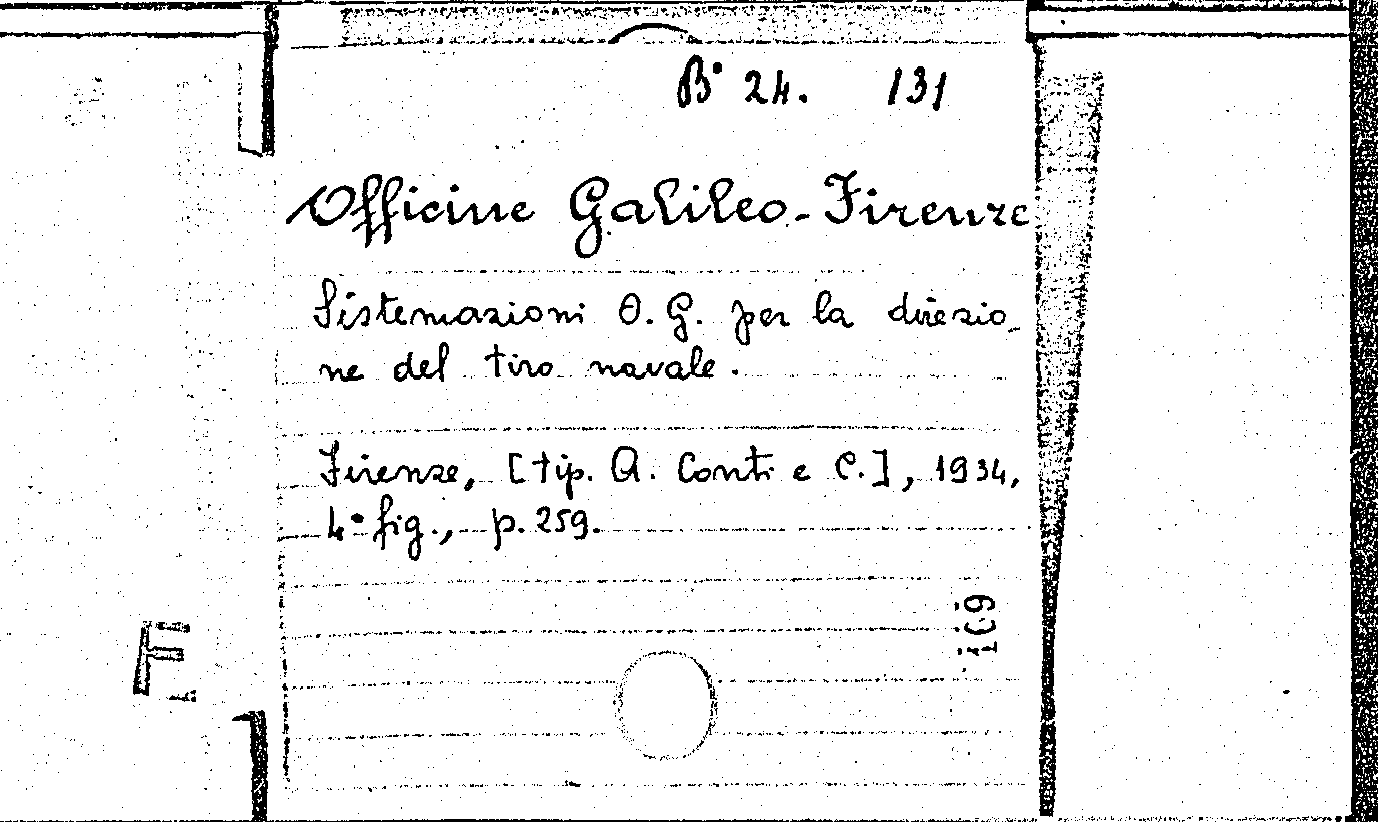 B° 24. 131
Officine Galileo - Firenze
Sistemazioni O. G. per la direzio_
ne del tiro navale.
Firenze, [tip. A. Conti e C.], 1934,
4° fig., p. 259.
E